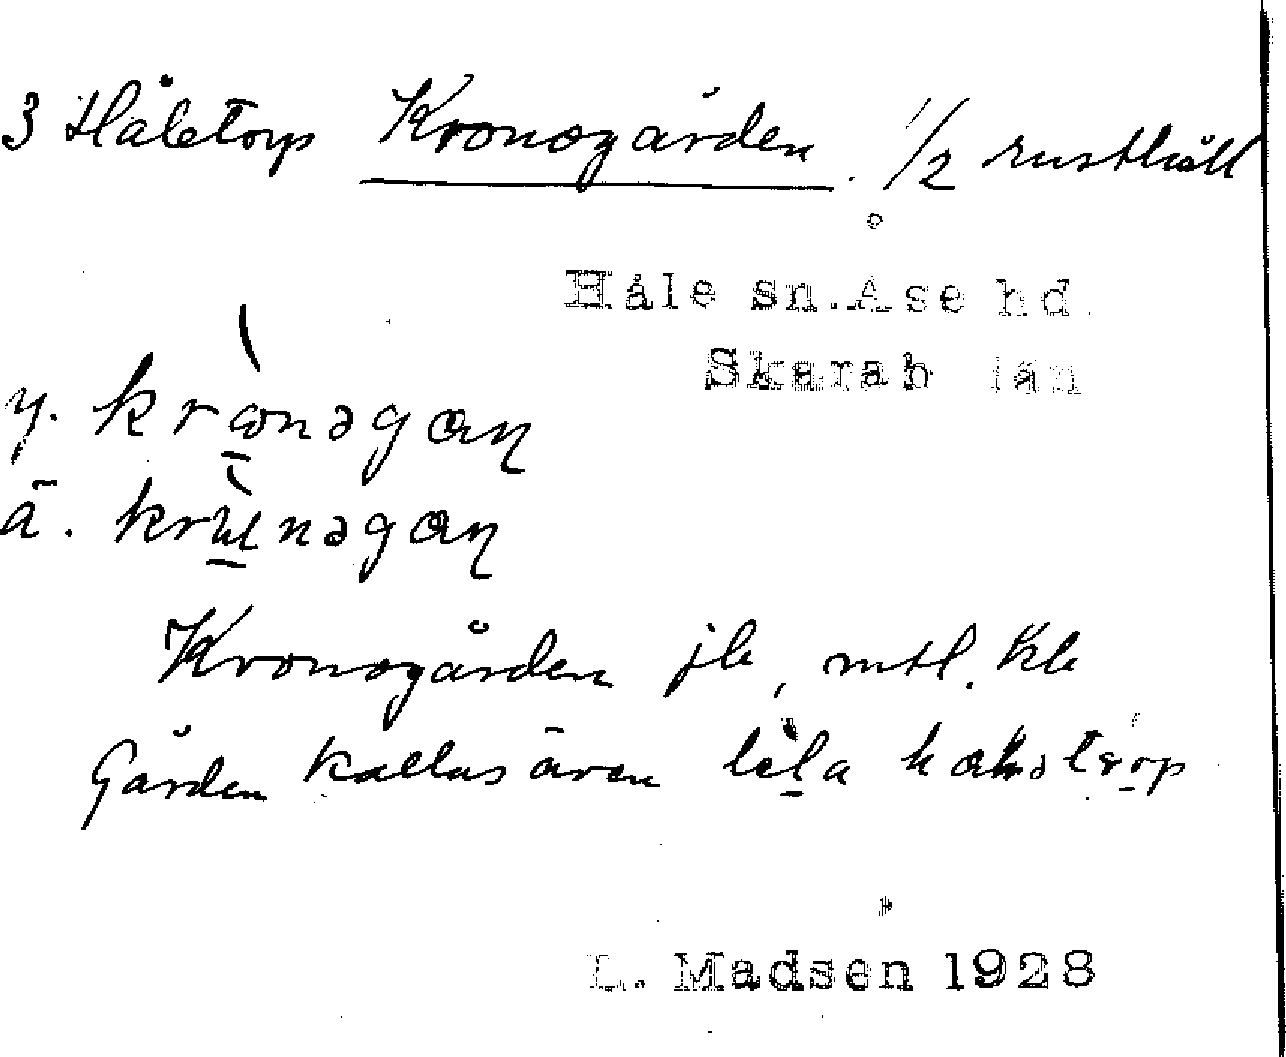 3 Håletorp Kronogården. 1/2 rusthåll
Håle sn. Åse hd.
Skarab län
y. krⱥnəgaɳ
ä. krunəgaɳ
Kronogården jb, mtl. kb
Gården kallas även lila
L. Madsen 1928